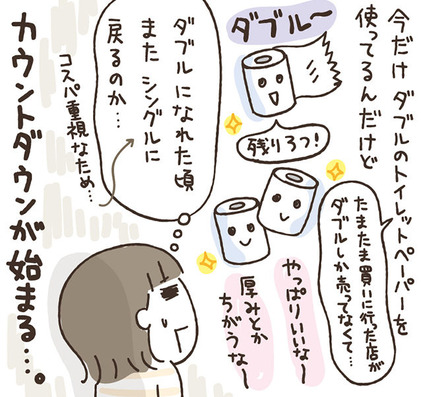 今だけ ダブルのトイレットペーパーを
使ってるんだけど
たまたま買いに行った店が
ダブルしか売ってなくて…
ダブル〜
残り3つ!
やっぱりいいな〜
厚みとか
ちがうな〜
ダブルになれた頃
また シングルに
戻るのか…
コスパ重視なため…
カウントダウンが始まる…。